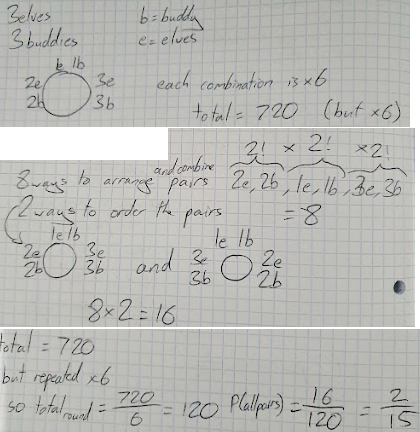 3elves b = buddy
3 buddies e = elves
1b
2e 3e each combination is x6
2b 3b
total = 720 (but x6)
2! x 2! x 2!
8 ways to arrange and combine pairs 2e, 2b, 1e, 1b, 3e, 3b
2 ways to order the pairs = 8
1e 1b 1e 1b
2e 3e and 3e 2e
2b 3b 3b 2b
8 x 2 = 16
total = 720
but repeated x6
so total round = 720/6 = 120 P(all pairs) = 16/120 = 2/15